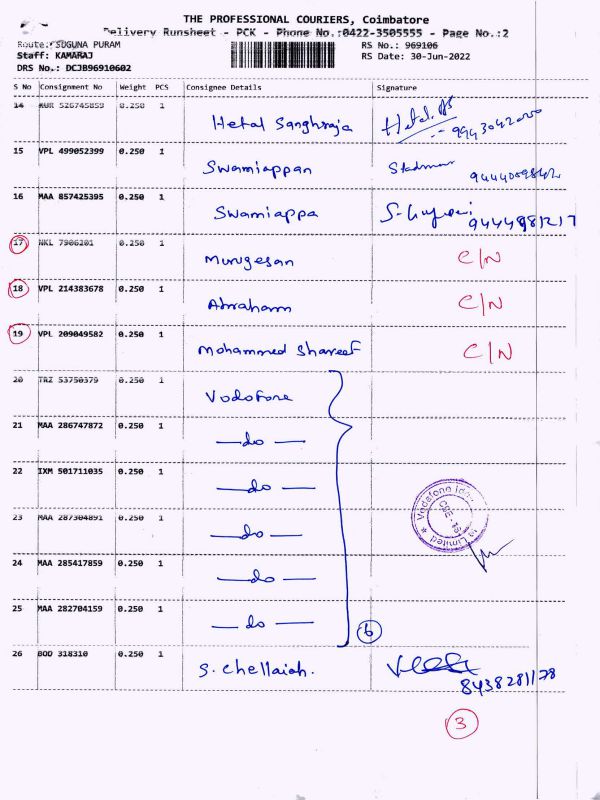 THE PROFESSIONAL COURIERS, Coimbatore
Delivery Runsheet - PCK - Phone No.:0422-3505555 - Page No.:2
Route: SUGUNA PURAM RS No.: 969106
Staff: KAMARAJ RS Date: 30-Jun-2022
DRS No.: DCJB96910602
S No Consignment No Weight PCS Consignee Details Signature
14 526745859 0.250 1 Hetal Sanghraja Hetal
15 VPL 499052399 0.250 1 Swamiappan
16 MAA 857425395 0.250 1 Swamiappa
17 NKL 7906201 0.250 1 Murugesan C/N
18 VPL 214383678 0.250 1 Abraham C/N
19 VPL 209049582 0.250 1 Mohammed Shareef C/N
20 TRZ 53750379 0.250 1 Vodofone
21 MAA 286747872 0.250 1 — do —
22 IXM 501711035 0.250 1 — do —
23 MAA 287304891 0.250 1 — do —
24 MAA 285417859 0.250 1 — do —
Vodafone Idea Limited
25 MAA 282704159 0.250 1 — do —
6
26 BOD 318310 0.250 1 S. Chellaiah.
8438281178
3